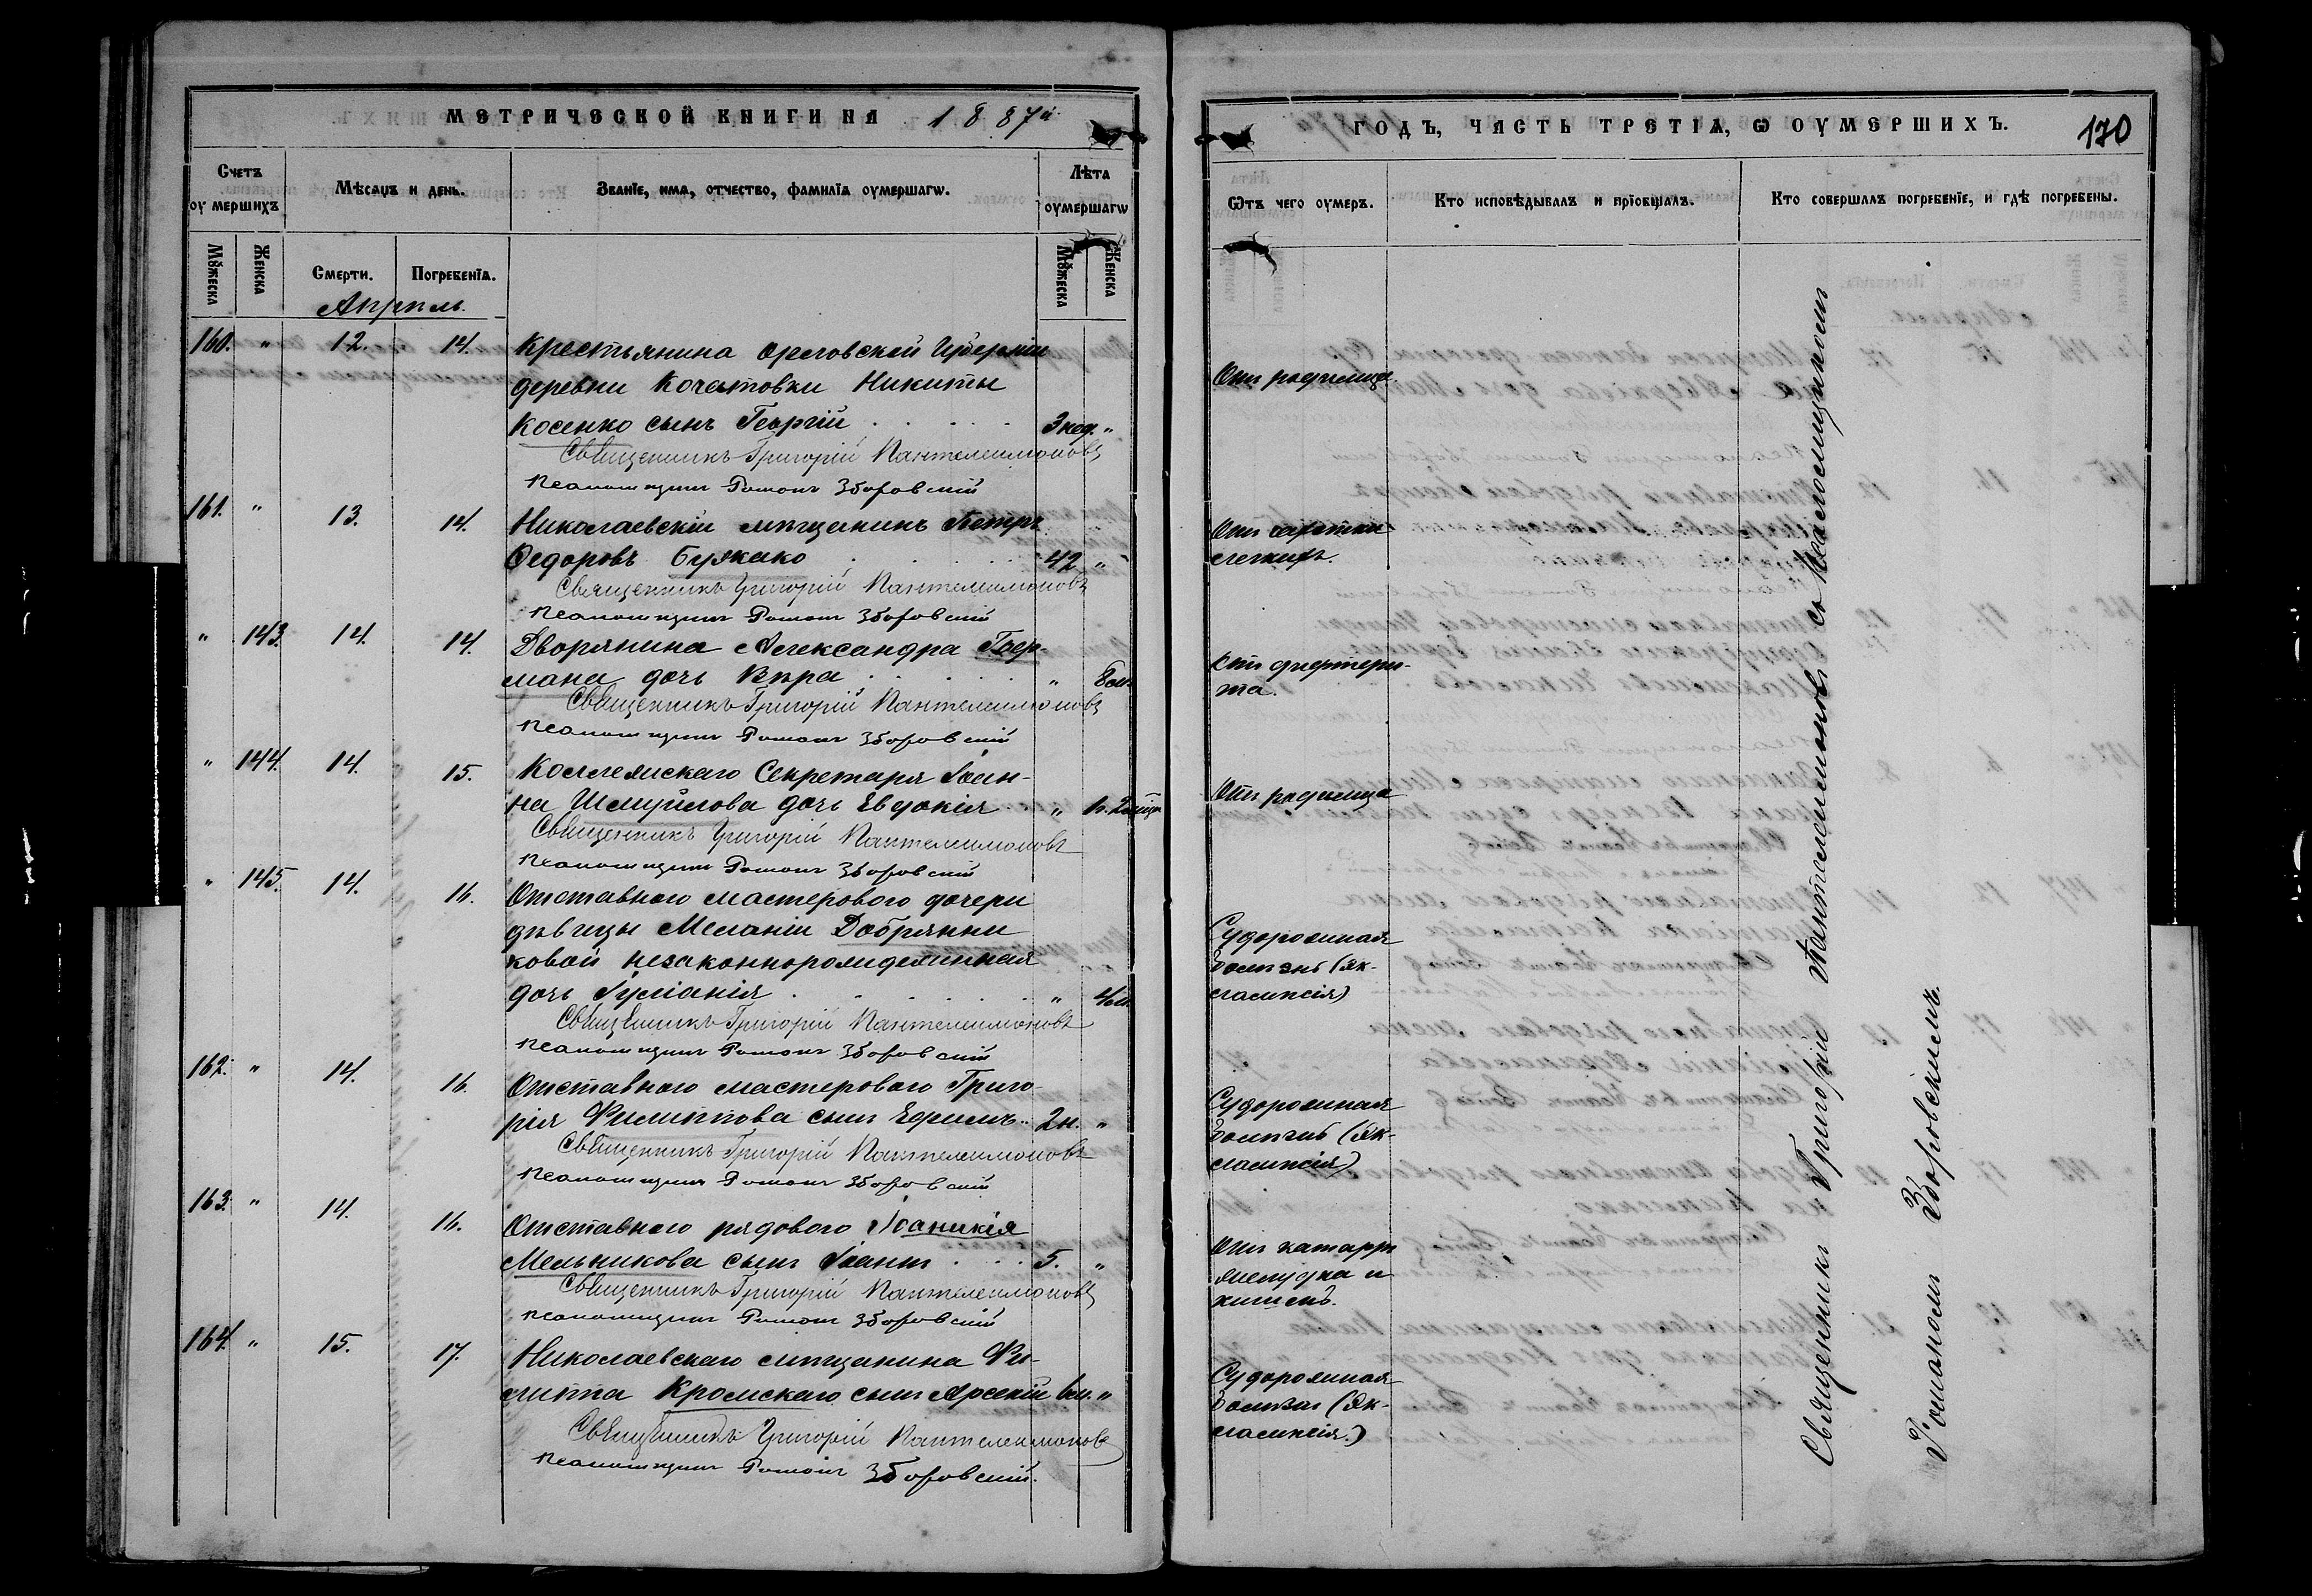 МЕТРИЧЕСКОЙ КНИГИ НА 1887й
ГОДЪ, ЧАСТЬ ТРЕТІѦ, Ѡ ОУМЕРШИХЪ.
170
Счетъ оумершихъ
Мѣсѧцъ и день.
Званїе, имѧ, отчество, фамилїѧ оумершагѡ.
Лѣта оумершагѡ
Ѿтъ чего оумеръ.
Кто исповѣдывалъ и прїобщалъ.
Кто совершалъ погребенїе, и гдѣ погребены.
Мꙋжеска
Женска
Смерти.
Погребенїѧ.
Мꙋжеска
Женска
Апрѣль.
160. " 12. 14. Крестьянина Орловской Губерніи
деревни Кочетовки Никиты
Косенко сынъ Георгій 3 нед. "
Отъ родимца.
Священникъ Григорій Пантелеимоновъ
Псаломщикъ Романъ Зборовскій
161. " 13. 14. Николаевскій мѣщанинъ Петръ
Ѳедоровъ Бужако 42 "
Отъ чахотки
легкихъ.
Священникъ Григорій Пантелеимоновъ
Псаломщикъ Романъ Зборовскій
" 143. 14. 14. Дворянина Александра Гоер-
мана дочь Вѣра " 8 м.
Отъ дифтери-
та.
Священникъ Григорій Пантелеимоновъ
Псаломщикъ Романъ Зборовскій
" 144. 14. 15. Коллежскаго Секретаря Іоан-
на Шмуйлова дочь Евдокія "
Отъ родимца
Священникъ Григорій Пантелеимоновъ
Псаломщикъ Романъ Зборовскій
" 145. 14. 16. Отставного мастерового дочери
дѣвицы Меланіи Добрянни
ковой незаконнорожденная
дочь Іуліанія " 4 м.
Судорожная
болѣзнь (эк-
лампсія)
Священникъ Григорій Пантелеимоновъ
Псаломщикъ Романъ Зборовскій
162. " 14. 16. Отставного мастерового Григо-
рія Филиппова сынъ Ефимъ 2 н. "
Судорожная
болѣзнь (эк-
лампсія)
Священникъ Григорій Пантелеимоновъ
Псаломщикъ Романъ Зборовскій
163. " 14. 16. Отставного рядового Іоаникія
Мельникова сынъ Іоаннъ 5. "
Отъ катарра
желудка и
кишекъ.
Священникъ Григорій Пантелеимоновъ
Псаломщикъ Романъ Зборовскій
164. " 15. 17. Николаевскаго мѣщанина Фи-
липпа Кромскаго сынъ Арсеній "
Судорожная
болѣзнь (эк-
лампсія.)
Священникъ Григорій Пантелеимоновъ
Псаломщикъ Романъ Зборовскій.
Священникъ Григорій Пантелеимоновъ съ Псаломщикомъ
Романомъ Зборовскимъ.